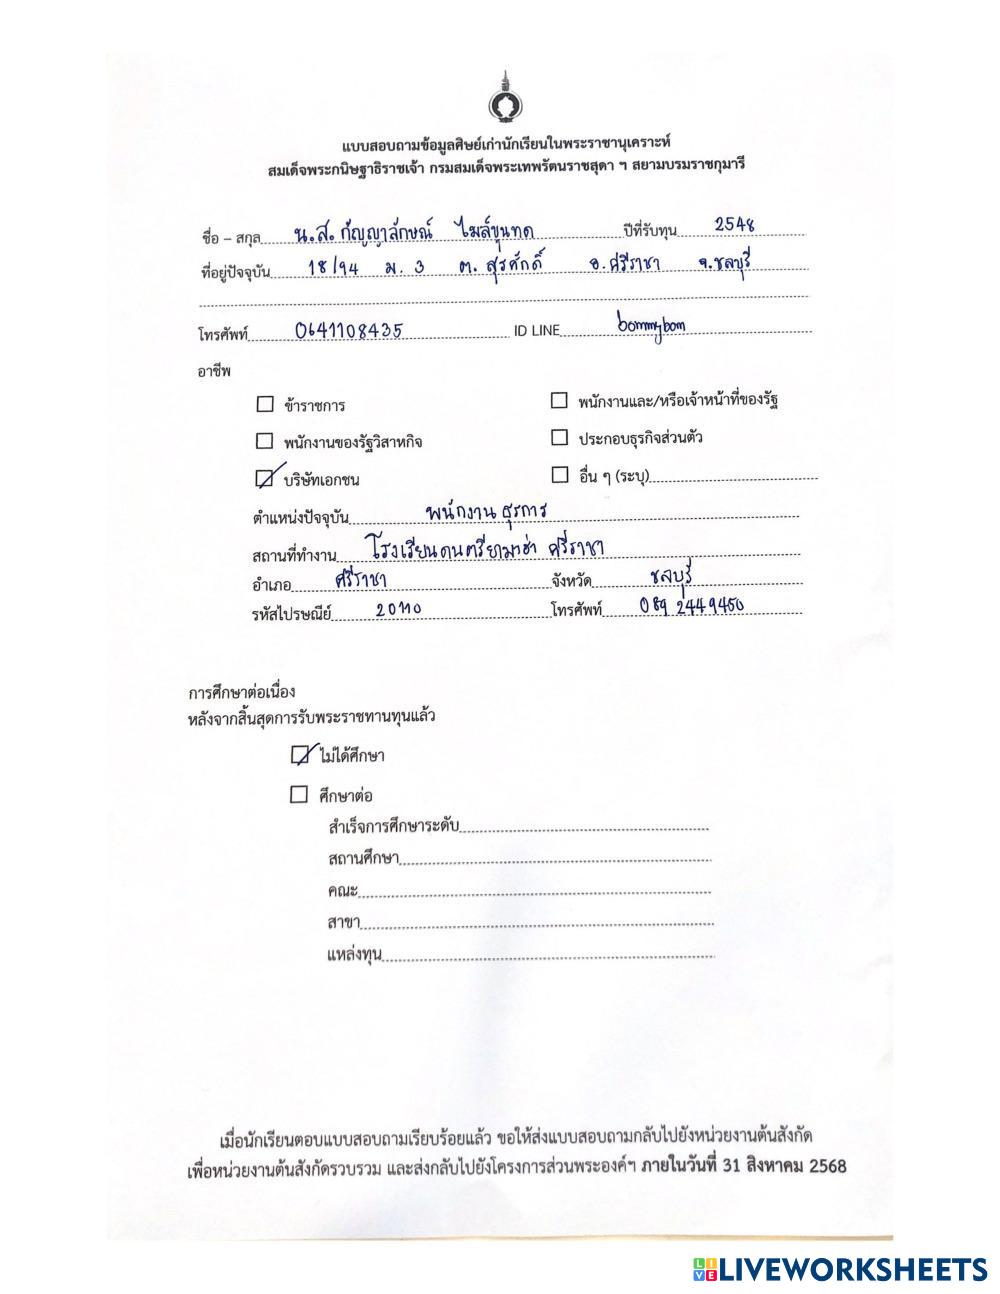 แบบสอบถามข้อมูลศิษย์เก่านักเรียนในพระราชานุเคราะห์
สมเด็จพระกนิษฐาธิราชเจ้า กรมสมเด็จพระเทพรัตนราชสุดา ฯ สยามบรมราชกุมารี
ชื่อ – สกุล น.ส. กัญญาลักษณ์ ไมล์ขุนทด ปีที่รับทุน 2548
ที่อยู่ปัจจุบัน 18/94 ม. 3 ต. สุรศักดิ์ อ. ศรีราชา จ. ชลบุรี
โทรศัพท์ 0641108435 ID LINE bommybom
อาชีพ
ข้าราชการ พนักงานและ/หรือเจ้าหน้าที่ของรัฐ
พนักงานของรัฐวิสาหกิจ ประกอบธุรกิจส่วนตัว
บริษัทเอกชน อื่น ๆ (ระบุ)
ตำแหน่งปัจจุบัน พนักงาน ธุรการ
สถานที่ทำงาน โรงเรียนดนตรียามาฮ่า ศรีราชา
อำเภอ ศรีราชา จังหวัด ชลบุรี
รหัสไปรษณีย์ 20110 โทรศัพท์ 089 2449450
การศึกษาต่อเนื่อง
หลังจากสิ้นสุดการรับพระราชทานทุนแล้ว
ไม่ได้ศึกษา
ศึกษาต่อ
สำเร็จการศึกษาระดับ
สถานศึกษา
คณะ
สาขา
แหล่งทุน
เมื่อนักเรียนตอบแบบสอบถามเรียบร้อยแล้ว ขอให้ส่งแบบสอบถามกลับไปยังหน่วยงานต้นสังกัด
เพื่อหน่วยงานต้นสังกัดรวบรวม และส่งกลับไปยังโครงการส่วนพระองค์ฯ ภายในวันที่ 31 สิงหาคม 2568
LIVEWORKSHEETS